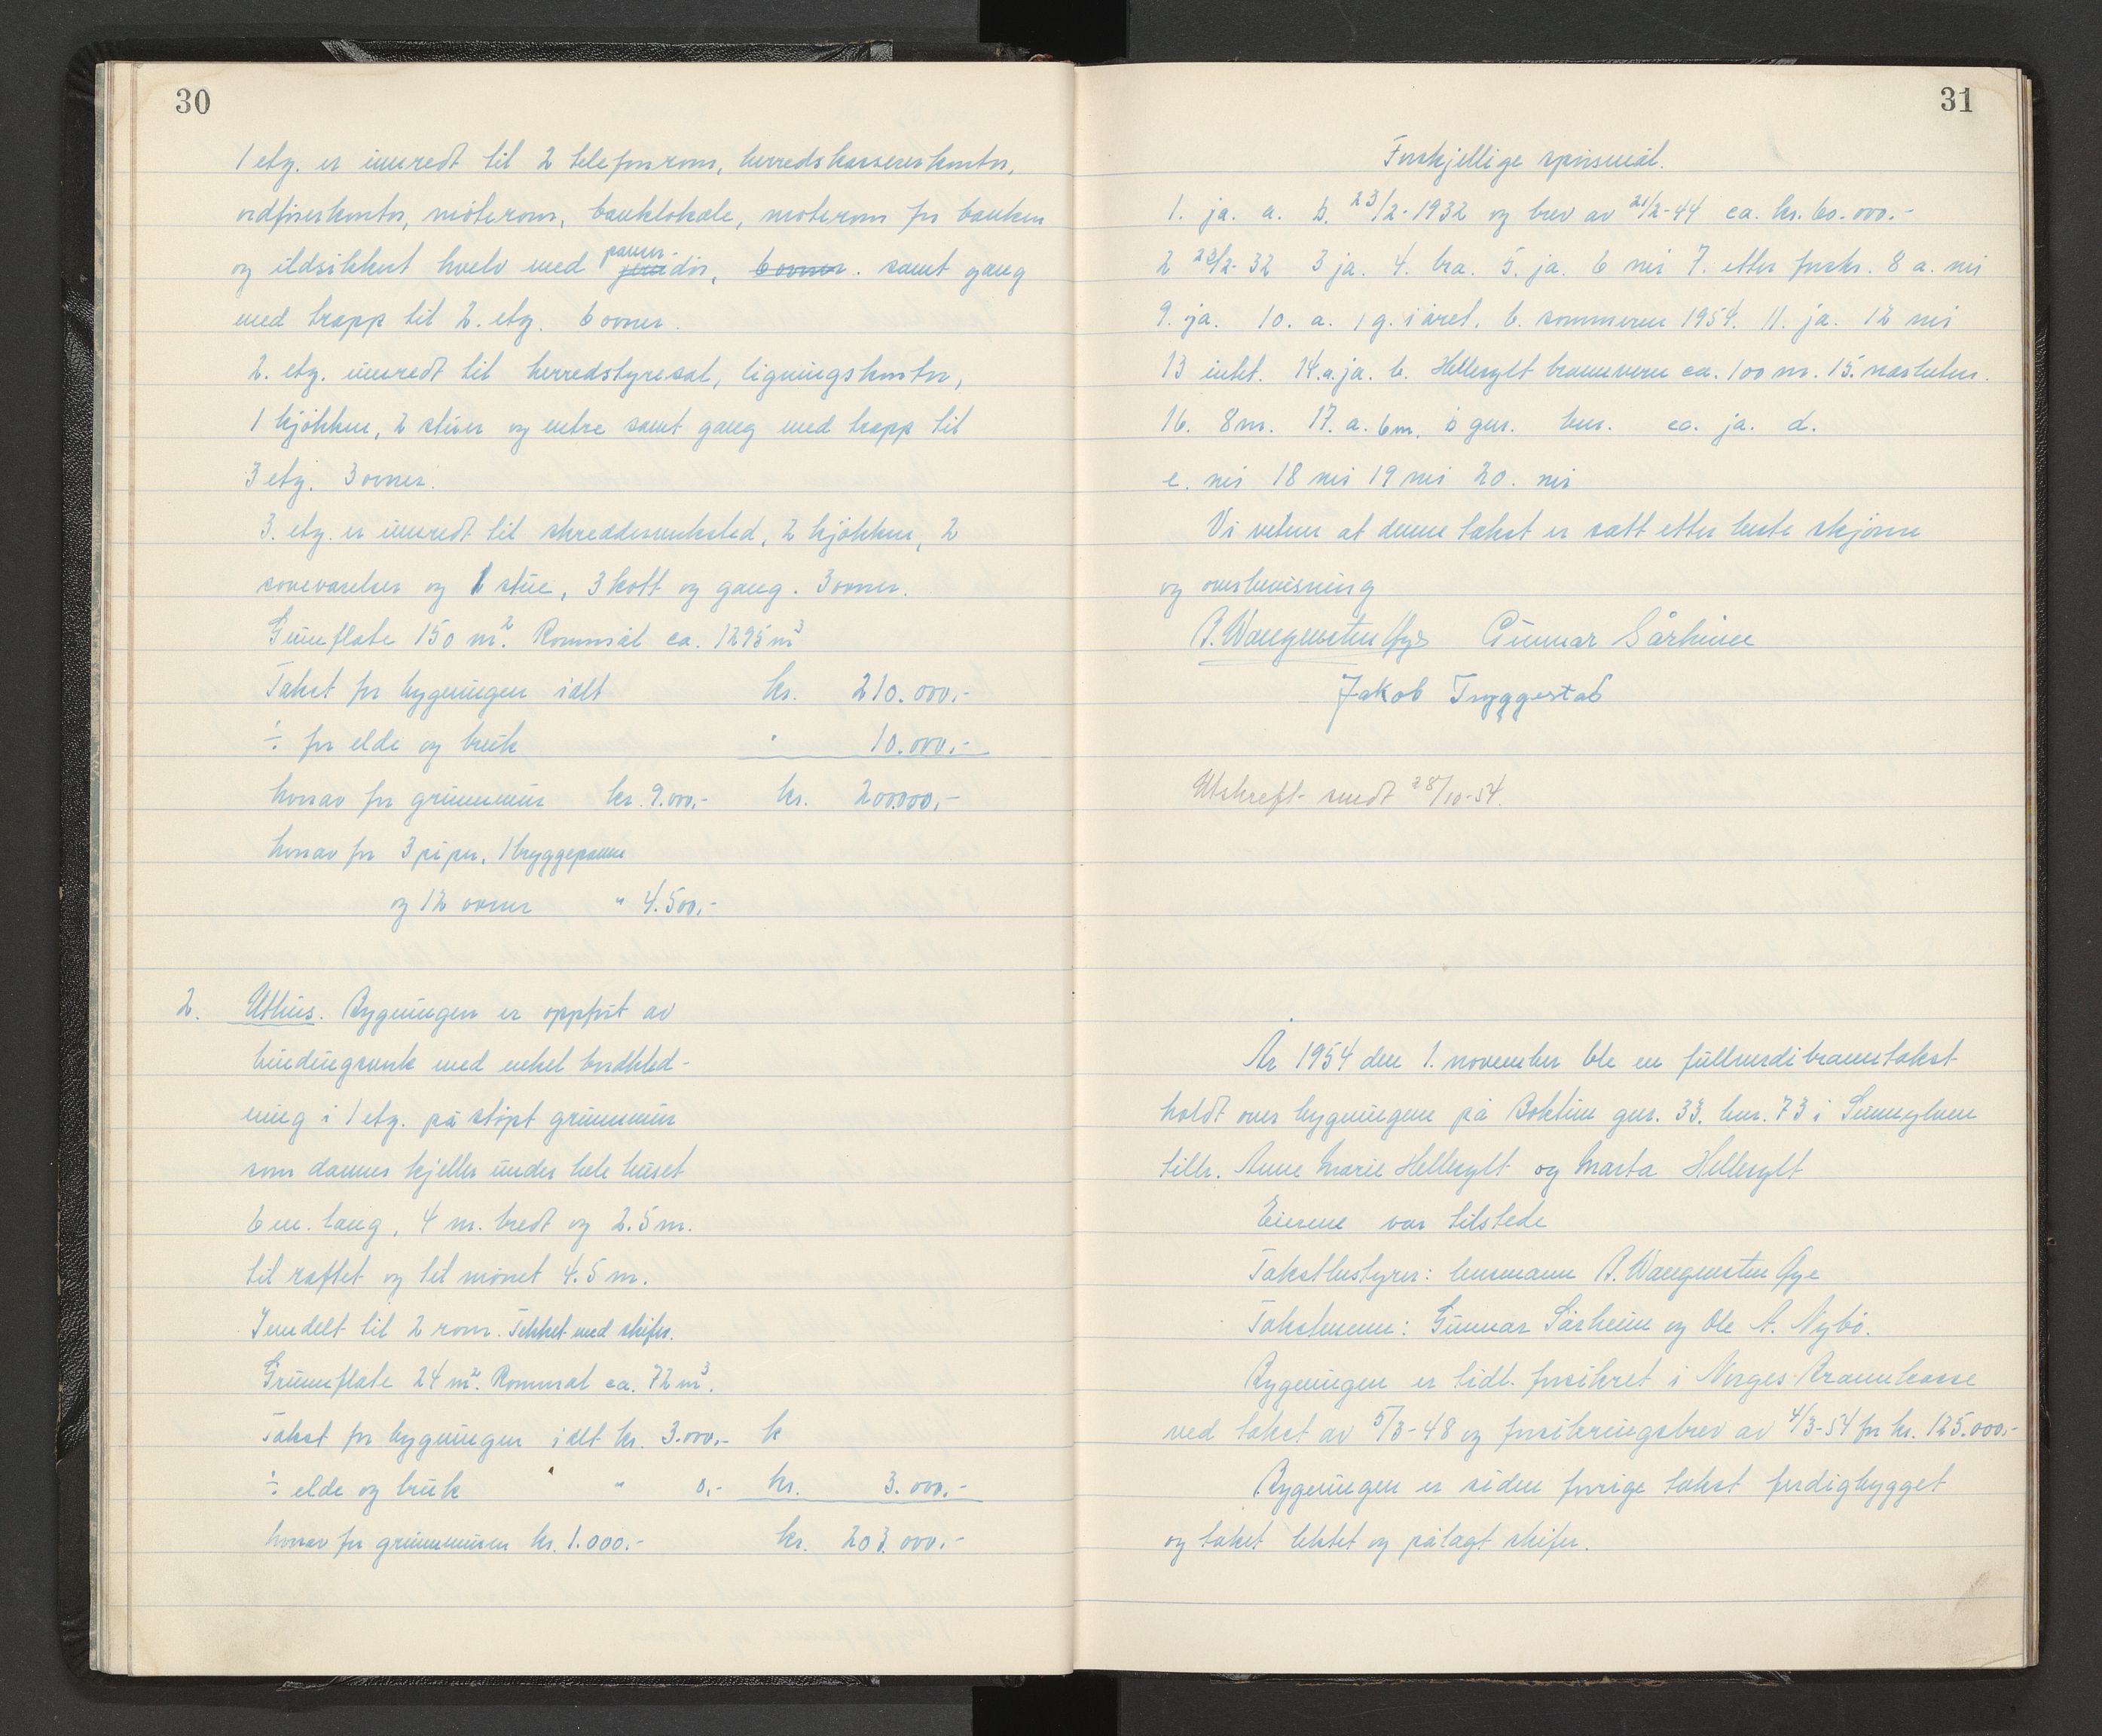 30
1 etg. er innredt til 2 telefonrom, herredskassererkontor,
ordførerkontor, møterom, banklokale, møterom for banken
og ildsikkert hvelv med panser- jern dør, 6 ovner. samt gang
med trapp til 2. etg. 6 ovner.
2. etg. innredt til herredstyresal, ligningskontor,
1 kjøkken, 2 stuer og entre samt gang med trapp til
3 etg. 3 ovner.
3. etg. er innredt til skredderverksted, 2 kjøkken, 2
soveværelser og 1 stue, 3 kott og gang. 3 ovner.
Grunnflate 150 m². Rommål ca. 1295 m³
Takst for bygningen ialt kr. 210.000,-
÷ for elde og bruk " 10.000,-
herav for grunnmur kr. 9.000,- kr. 200.000,-
herav for 3 piper, 1 bryggepanne
og 12 ovner " 4.500,-
2. Uthus. Bygningen er oppført av
bindingsverk med enkel bordkled-
ning i 1 etg. på støpt grunnmur
som danner kjeller under hele huset
6 m. lang, 4 m. bredt og 2.5 m.
til raftet og til mønet 4.5 m.
Inndelt til 2 rom. Tekket med skifer.
Grunnflate 24 m². Rommål ca. 72 m³.
Takst for bygningen ialt kr. 3.000,- k
÷ elde og bruk " 0,- kr. 3.000,-
herav for grunnmuren kr. 1.000.- kr. 203.000,-
31
Forskjellige spørsmål.
1. ja. a. b. 23/2-1932 og brev av 21/2-44 ca. kr. 60.000.-
2 23/2-32 3 ja. 4. bra. 5. ja. 6 nei 7. etter forskr. 8 a. nei
9. ja. 10. a. 1 g. i året. b. sommeren 1954. 11. ja. 12 nei
13 intet. 14. a. ja. b. Hellesylt brannvern ca. 100 m. 15.
16. 8 m. 17. a. 6 m. b gnr. bnr. ca. ja. d.
e. nei 18 nei 19 nei 20. nei
Vi vitner at denne takst er satt etter beste skjønn
og overbevisning
A. Wangensten Øye Gunnar Sårheim
Jakob Tryggestad
Utskrift sendt 28/10-54.
År 1954 den 1. november ble en fullverdibranntakst
holdt over bygningene på Boktun gnr. 33. bnr. 73 i Sunnylven
tilh. Anne Marie Hellesylt og Marta Hellesylt
Eierene var tilstede
Takstbestyrer: lensmann A. Wangensten Øye
Takstmenn: Gunnar Sårheim og Ole A. Nybø.
Bygningen er tidl. forsikret i Norges Brannkasse
ved takst av 5/3-48 og forsikringsbrev av 4/3-54 for kr. 125.000,-
Bygningen er siden forrige takst ferdigbygget
og taket lektet og pålagt skifer.